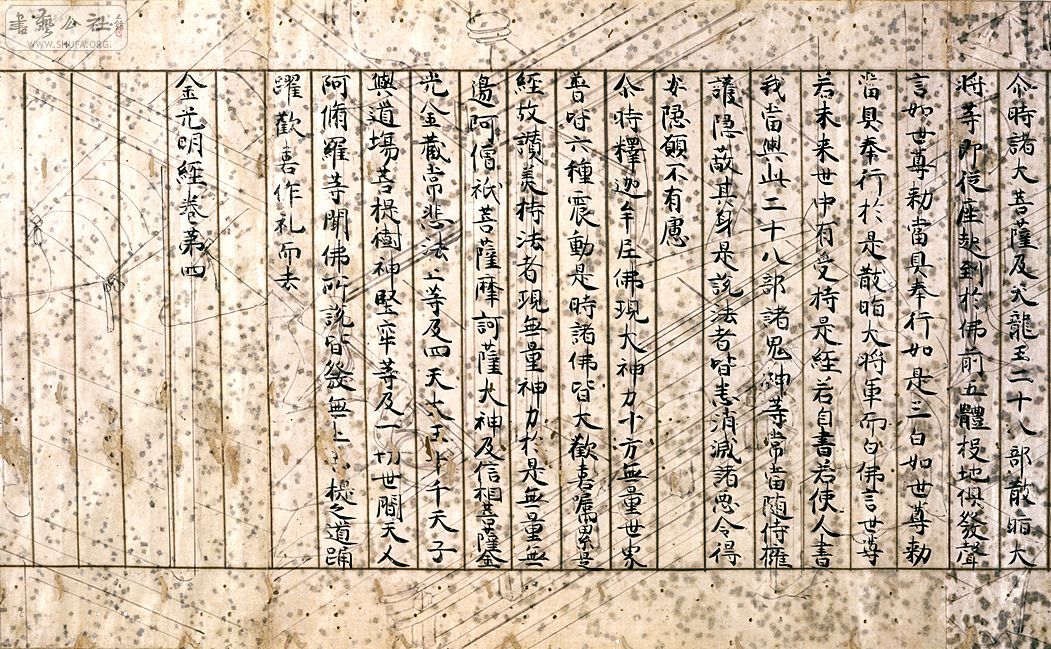 尒時諸大菩薩及天龍王二十八部散脂大
將等即従座起到於佛前五體投地俱發聲
言如世尊勑當具奉行如是三白如世尊勑
當具奉行於是散脂大將軍而白佛言世尊
若未来世中有受持是経若自書若使人書
我當與此二十八部諸鬼神等常當随侍擁
護隠蔽其身是説法者皆悉消滅諸惡令得
安隠願不有慮
尒時釋迦牟尼佛現大神力十方無量世界
普皆六種震動是時諸佛皆大歡喜囑累是
経故讃美持法者現無量神力於是無量無
邊阿僧祇菩薩摩訶薩大神及信相菩薩金
光金蔵常悲法上等及四天大王十千天子
與道場菩提樹神堅牢等及一切世間天人
阿脩羅等聞佛所説皆發無上菩提之道踊
躍歡喜作礼而去
金光明経巻第四
書藝公社
WWW.SHUFA.ORG